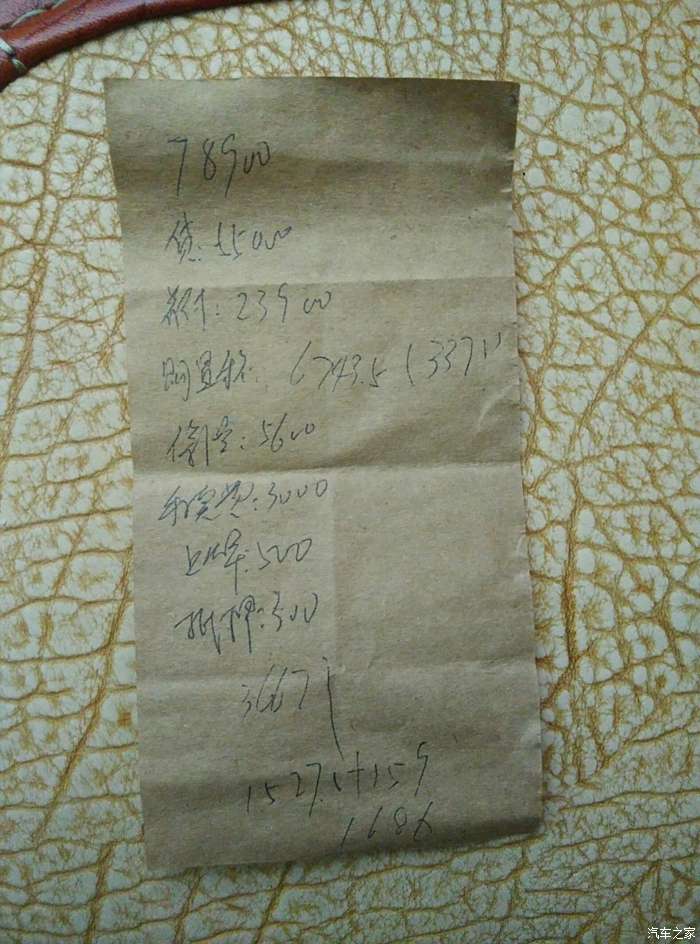 78900
贷:55000
首付:23900
购置税: 6743.5 (3371)
保险:5600
手续费:3000
上牌:500
抵押:300
36671
1527.+159
1686
汽车之家